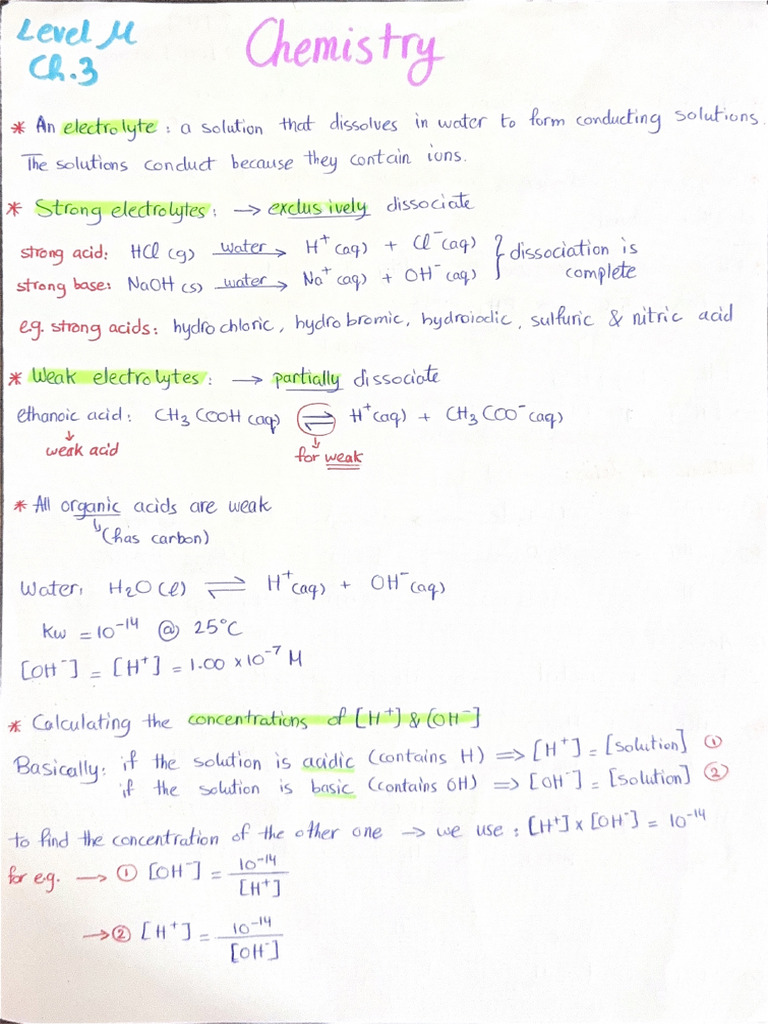 Level M
Ch.3
Chemistry
* An electrolyte: a solution that dissolves in water to form conducting solutions.
The solutions conduct because they contain ions.
* Strong electrolytes: → exclusively dissociate
strong acid: HCl (g) water→ H⁺(aq) + Cl⁻(aq) } dissociation is
strong base: NaOH (s) water→ Na⁺(aq) + OH⁻(aq) complete
e.g. strong acids: hydrochloric, hydrobromic, hydroiodic, sulfuric & nitric acid
* Weak electrolytes: → partially dissociate
ethanoic acid: CH₃COOH (aq) ⇌ H⁺(aq) + CH₃COO⁻(aq)
↓ weak acid ↓ for weak
* All organic acids are weak
↳ (has carbon)
Water: H₂O(l) ⇌ H⁺(aq) + OH⁻(aq)
Kw = 10⁻¹⁴ @ 25°C
[OH⁻] = [H⁺] = 1.00 × 10⁻⁷ M
* Calculating the concentrations of [H⁺] & [OH⁻]
Basically: if the solution is acidic (contains H) ⇒ [H⁺] = [solution] ①
if the solution is basic (contains OH) ⇒ [OH⁻] = [solution] ②
to find the concentration of the other one → we use: [H⁺] × [OH⁻] = 10⁻¹⁴
for e.g. → ① [OH⁻] = 10⁻¹⁴ / [H⁺]
→ ② [H⁺] = 10⁻¹⁴ / [OH⁻]